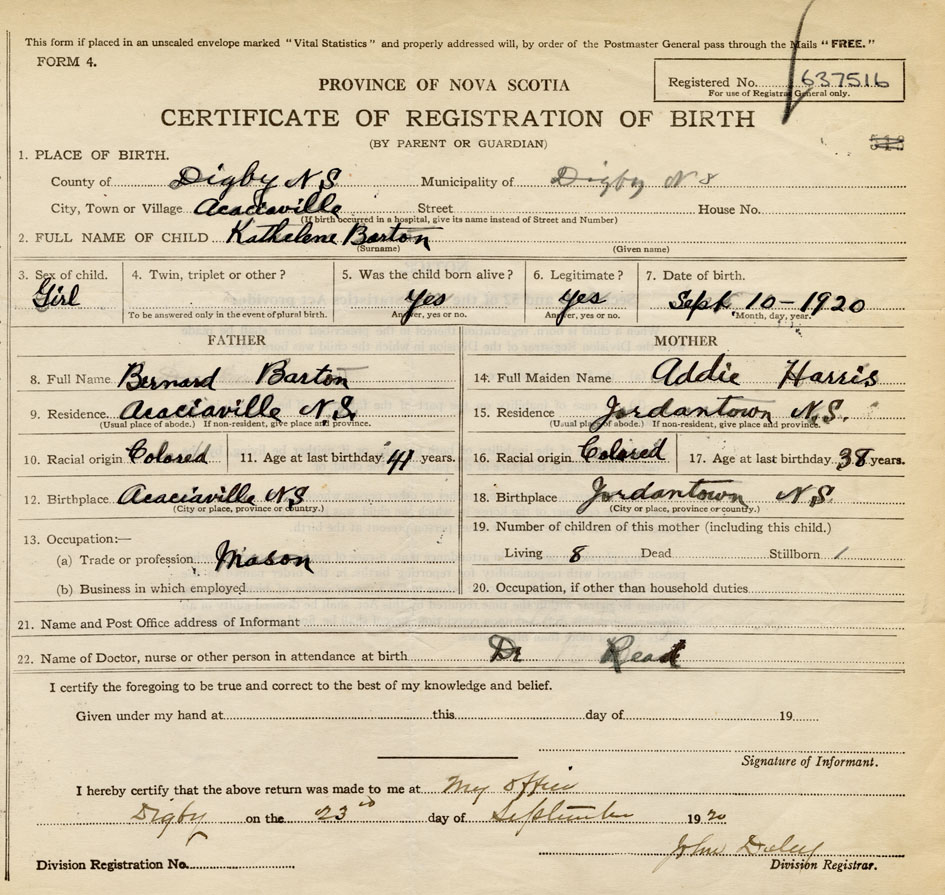 This form if placed in an unsealed envelope marked "Vital Statistics" and properly addressed will, by order of the Postmaster General pass through the Mails "FREE."
FORM 4.
Registered No. 637516
For use of Registrar General only.
PROVINCE OF NOVA SCOTIA
CERTIFICATE OF REGISTRATION OF BIRTH
(BY PARENT OR GUARDIAN)
1. PLACE OF BIRTH.
County of Digby N S Municipality of Digby N S
City, Town or Village Acaciaville Street House No.
(If birth occurred in a hospital, give its name instead of Street and Number)
2. FULL NAME OF CHILD Kathelene Barton
(Surname) (Given name)
3. Sex of child. 4. Twin, triplet or other? 5. Was the child born alive? 6. Legitimate? 7. Date of birth.
Girl Yes Yes Sept 10-1920
To be answered only in the event of plural birth. Answer, yes or no. Answer, yes or no. Month, day, year.
FATHER MOTHER
8. Full Name Bernard Barton 14. Full Maiden Name Addie Harris
9. Residence Acaciaville N.S. 15. Residence Jordantown N.S.
(Usual place of abode.) If non-resident, give place and province. (Usual place of abode.) If non-resident, give place and province.
10. Racial origin Colored 11. Age at last birthday 41 years. 16. Racial origin Colored 17. Age at last birthday 38 years.
12. Birthplace Acaciaville N S 18. Birthplace Jordantown N.S
(City or place, province or country.) (City or place, province or country.)
13. Occupation:— 19. Number of children of this mother (including this child.)
(a) Trade or profession Mason Living 8 Dead Stillborn /
(b) Business in which employed 20. Occupation, if other than household duties
21. Name and Post Office address of Informant
22. Name of Doctor, nurse or other person in attendance at birth Dr Read
I certify the foregoing to be true and correct to the best of my knowledge and belief.
Given under my hand at this day of 19
Signature of Informant.
I hereby certify that the above return was made to me at My office
Digby on the 23rd day of September 1920
John Daley
Division Registration No. Division Registrar.